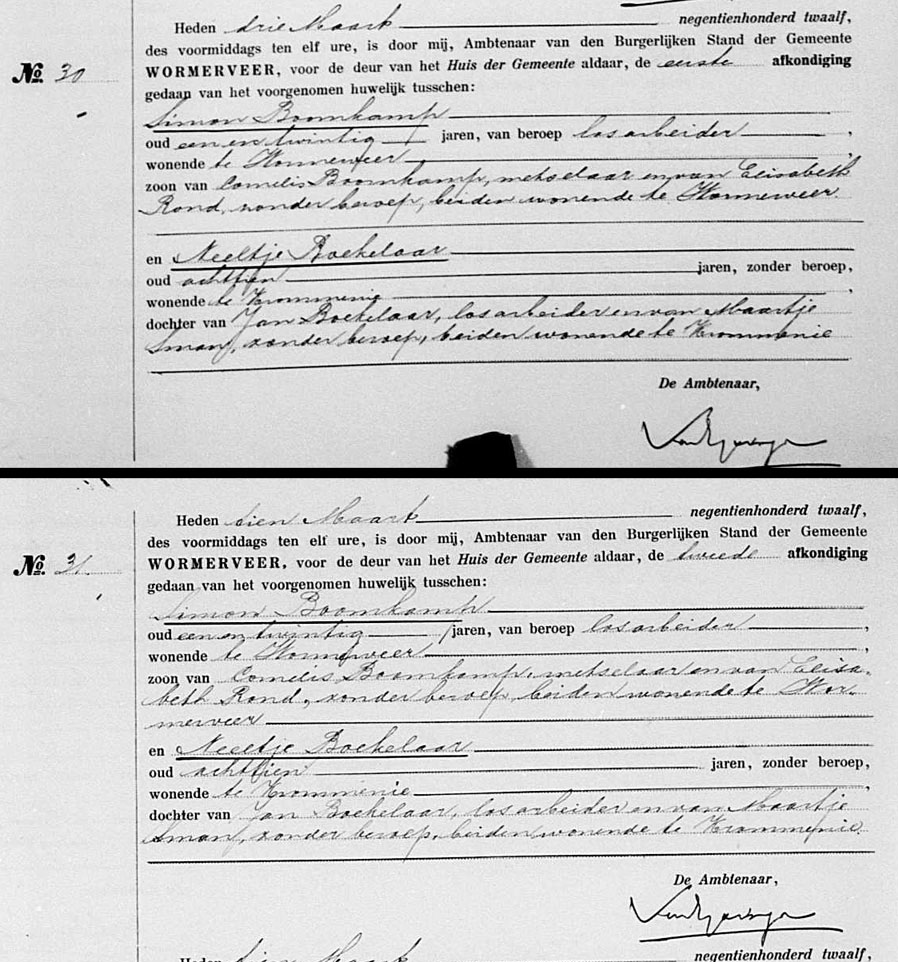 Heden drie Maart negentienhonderd twaalf,
des voormiddags ten elf ure, is door mij, Ambtenaar van den Burgerlijken Stand der Gemeente
No. 30 WORMERVEER, voor de deur van het Huis der Gemeente aldaar, de eerste afkondiging
gedaan van het voorgenomen huwelijk tusschen:
Simon Boomkamp
oud een en twintig jaren, van beroep los arbeider,
wonende te Wormerveer,
zoon van Cornelis Boomkamp, metselaar en van Elisabeth
Rond, zonder beroep, beiden wonende te Wormerveer.
en Neeltje Boekelaar
oud achttien jaren, zonder beroep,
wonende te Krommenie,
dochter van Jan Boekelaar, los arbeider en van Maartje
Sman, zonder beroep, beiden wonende te Krommenie
De Ambtenaar,
Heden tien Maart negentienhonderd twaalf,
des voormiddags ten elf ure, is door mij, Ambtenaar van den Burgerlijken Stand der Gemeente
No. 31. WORMERVEER, voor de deur van het Huis der Gemeente aldaar, de tweede afkondiging
gedaan van het voorgenomen huwelijk tusschen:
Simon Boomkamp
oud een en twintig jaren, van beroep los arbeider,
wonende te Wormerveer,
zoon van Cornelis Boomkamp, metselaar en van Elisa-
beth Rond, zonder beroep, beiden wonende te Wor-
merveer
en Neeltje Boekelaar
oud achttien jaren, zonder beroep,
wonende te Krommenie,
dochter van Jan Boekelaar, los arbeider en van Maartje
Sman, zonder beroep, beiden wonende te Krommenie.
De Ambtenaar,
Heden tien Maart negentienhonderd twaalf,